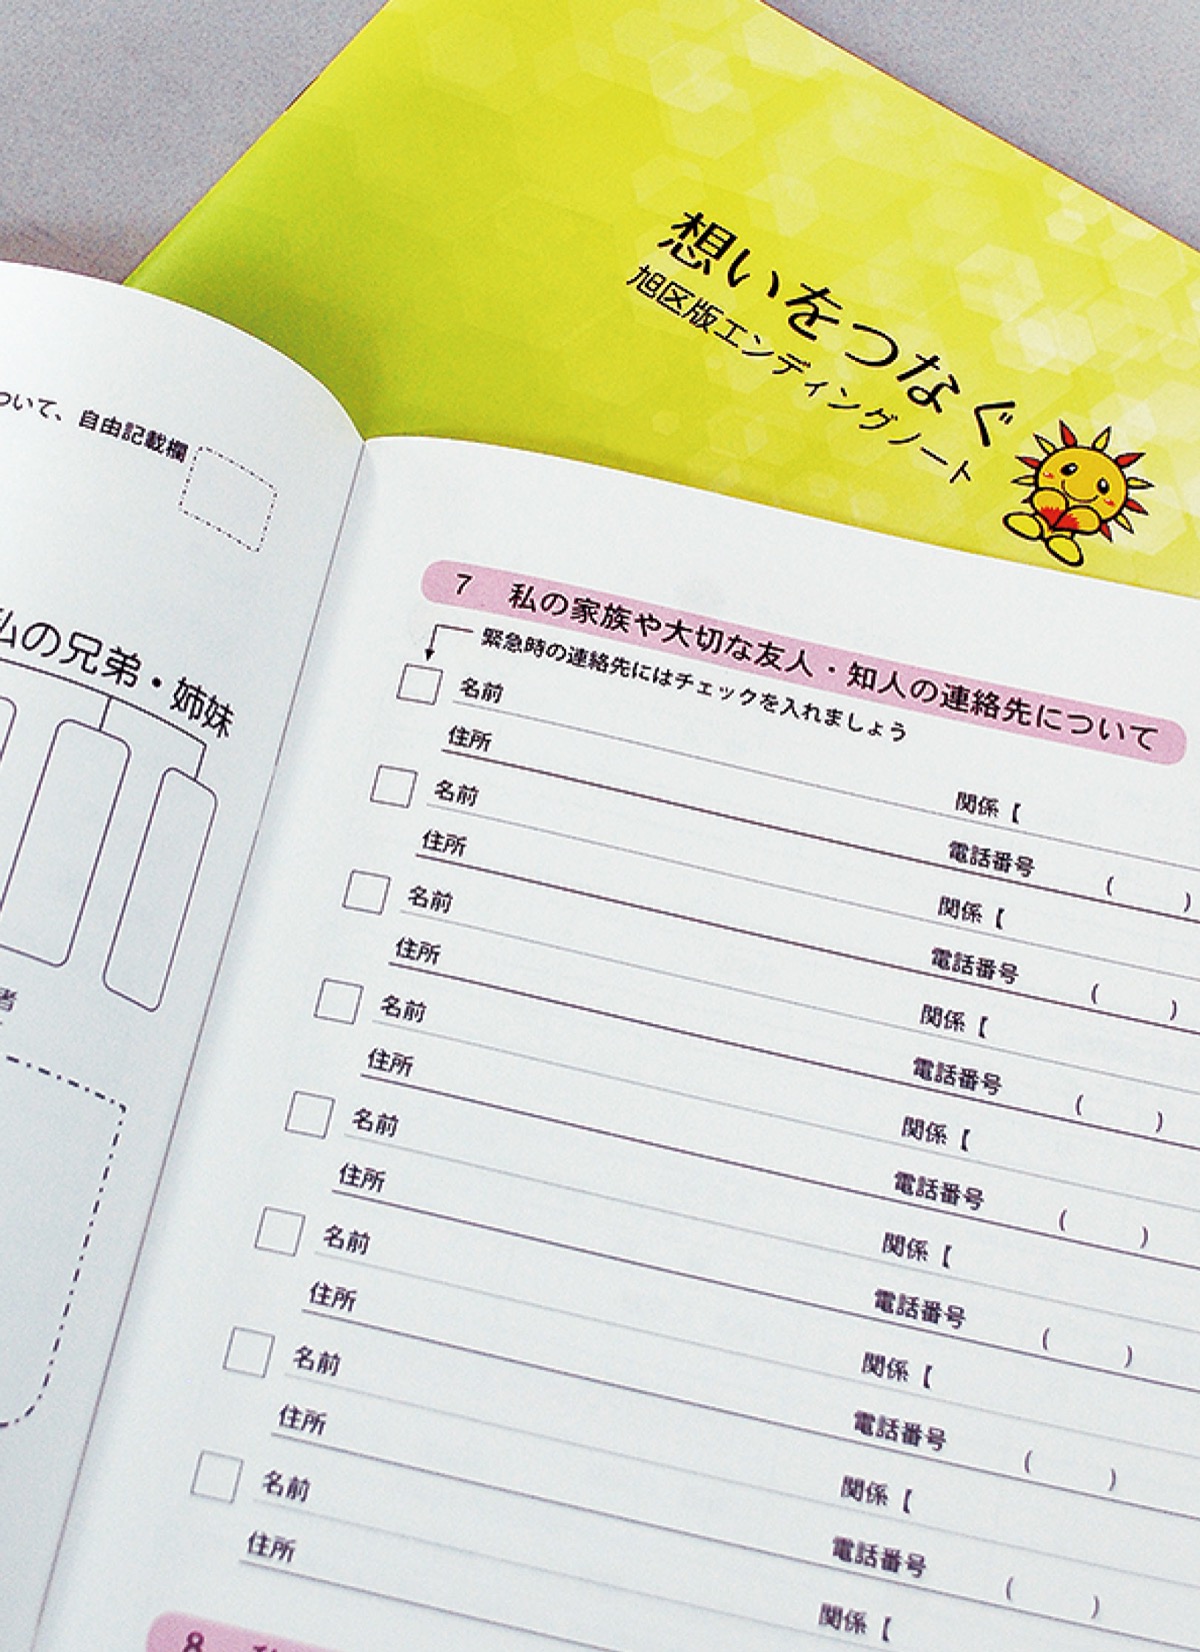 想いをつなぐ
旭区版エンディングノート
ついて、自由記載欄
私の兄弟・姉妹
者
7 私の家族や大切な友人・知人の連絡先について
緊急時の連絡先にはチェックを入れましょう
名前
関係【
住所
電話番号 ( )
名前
関係【
住所
電話番号 ( )
名前
関係【
住所
電話番号 ( )
名前
関係【
住所
電話番号 ( )
名前
関係【
住所
電話番号 ( )
名前
関係【
住所
電話番号 ( )
名前
関係【
住所
電話番号 ( )
名前
関係【
住所
8